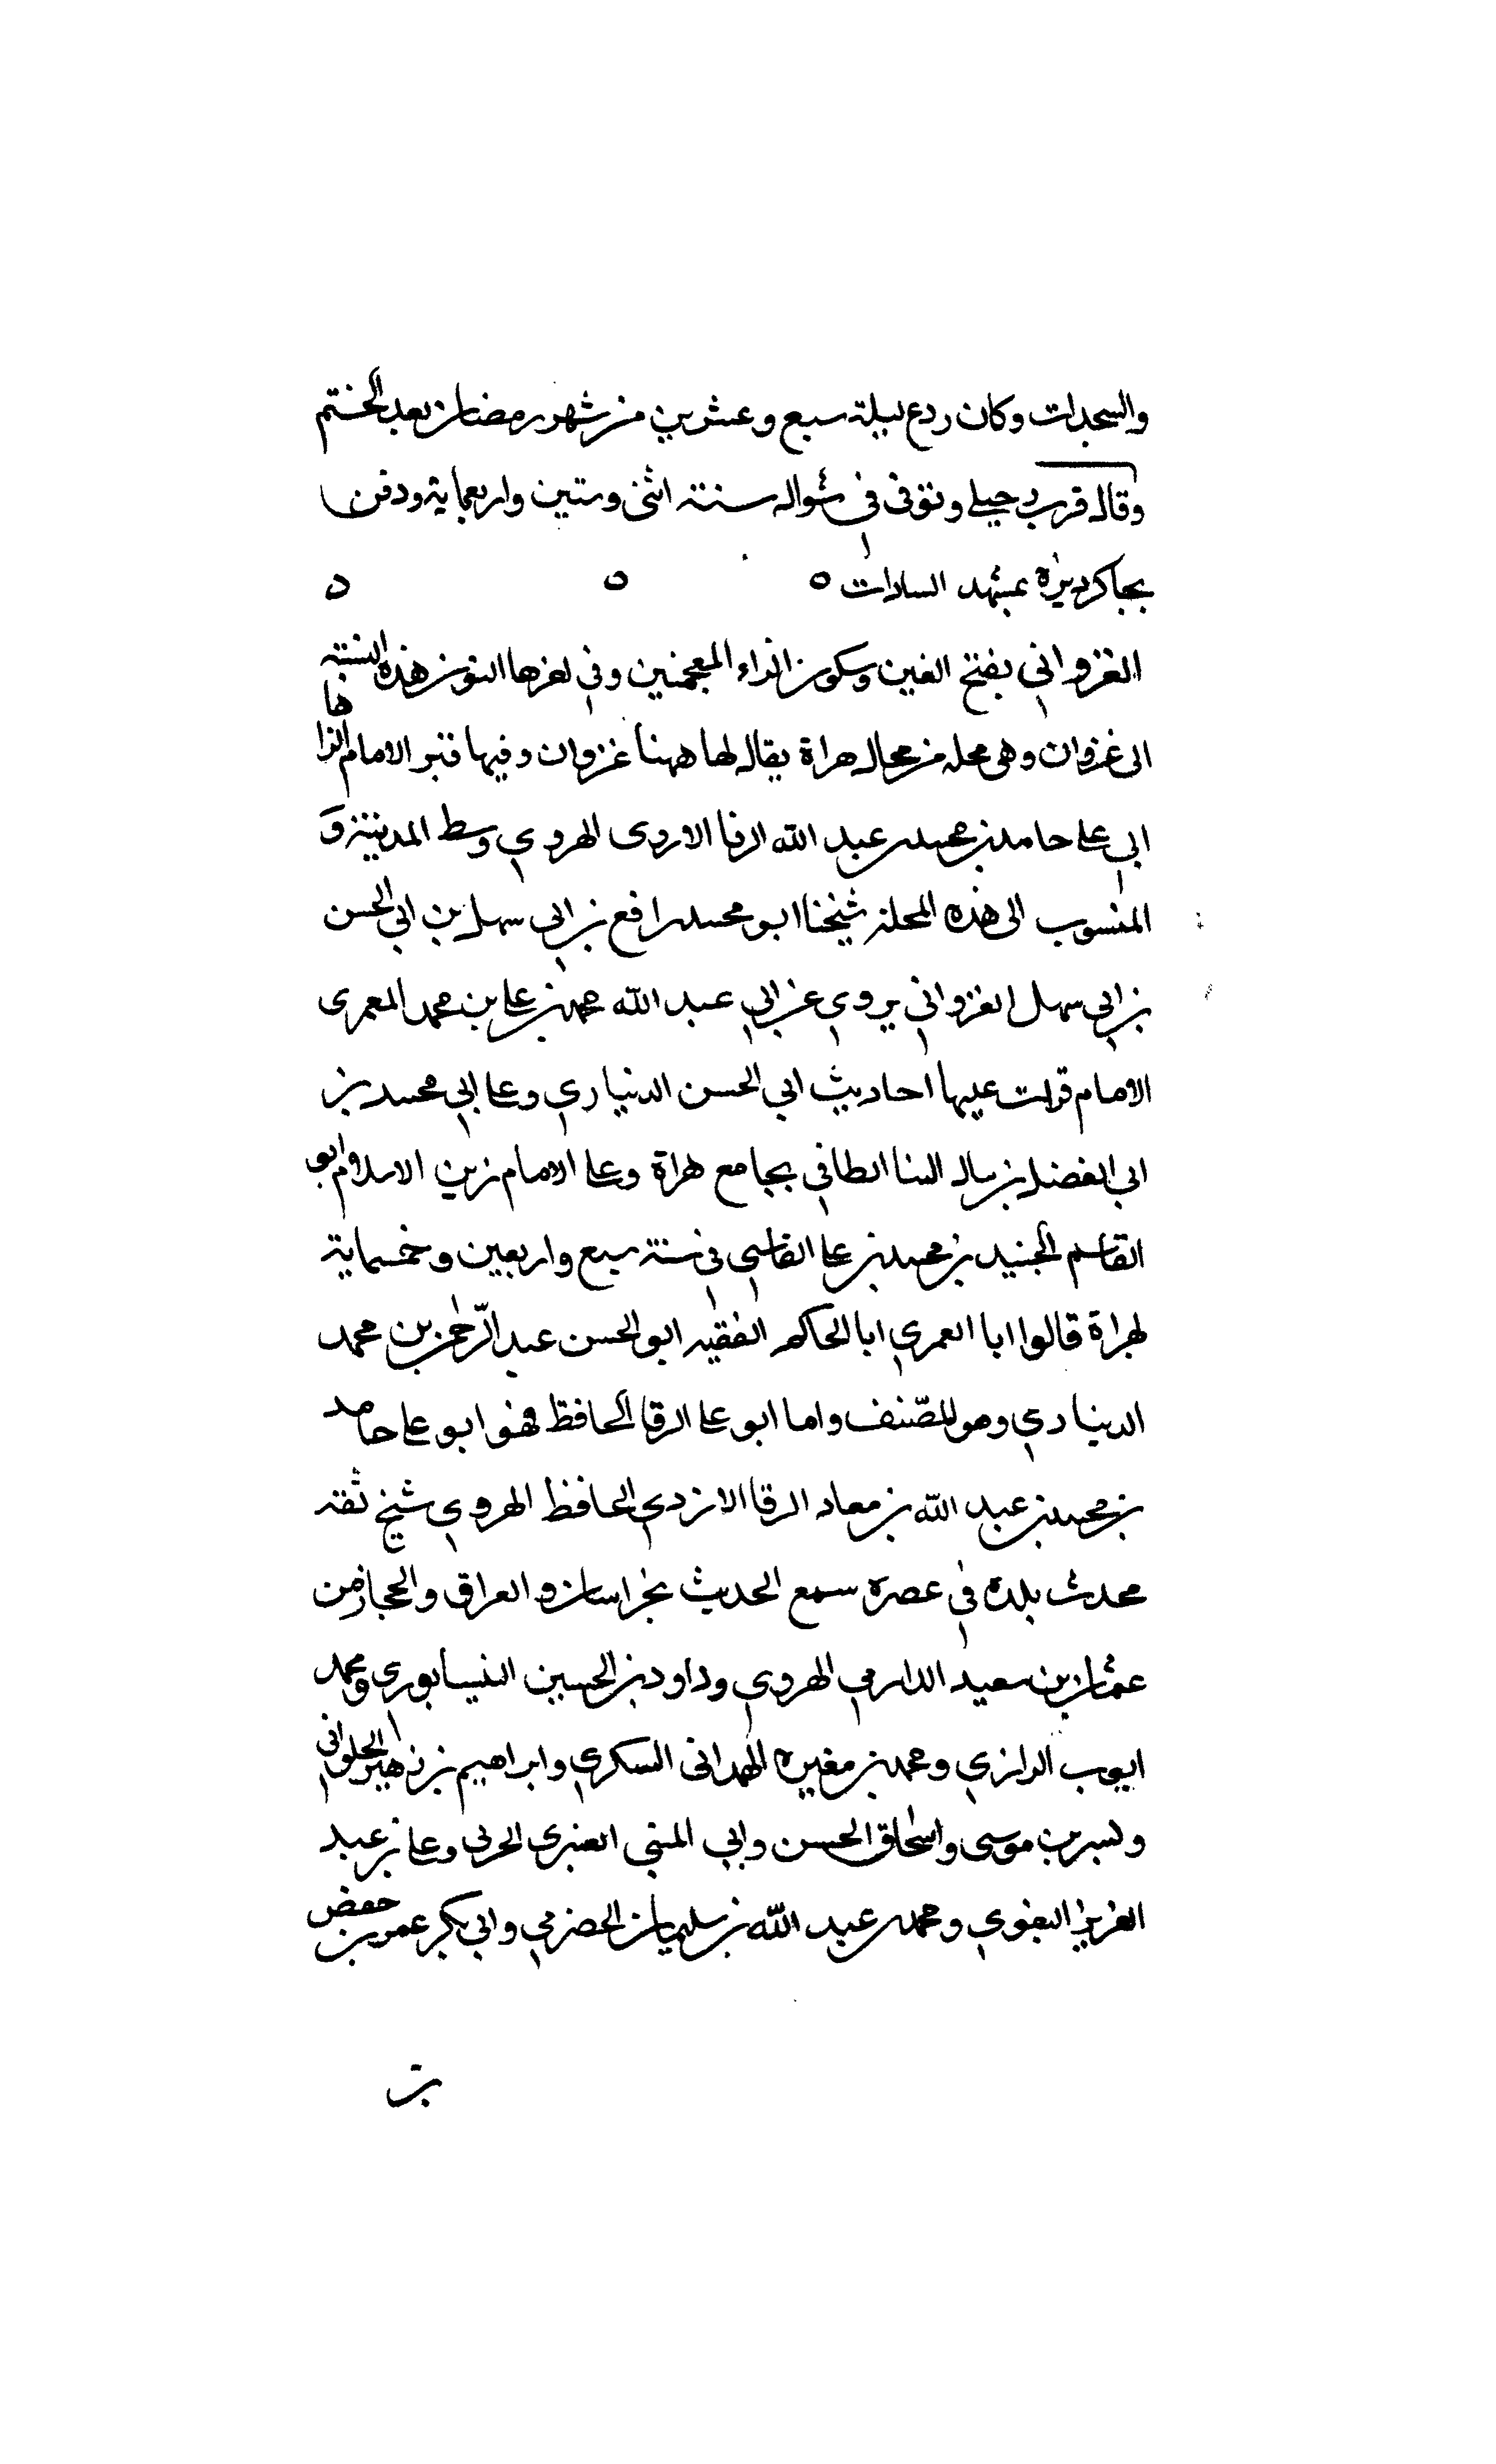 والسجدات وكان ردع ليلة سبع وعشرين من شهر رمضان بعد الختم
وقال قرب رحيلي وتوفى في شوال سنة اثنى وستين واربعماية ودفن
بجاكرديزه بمشهد السادات ه ه ه
الغزواني بفتح الغين وسكون الزاء المعجمتين وفي اخرها النون هذه النسبة
الى غزوان وهي محلة من محال هراة يقال لها ههنا غزوان وفيها قبر الامام
ابي على حامد بن محمد بن عبد الله الرفا الازدى الهروي وسط المدينة و
المنسوب الى هذه المحلة شيخنا ابو محمد رافع بن ابي سهل بن ابي الحسن
بن ابي سهل الغزواني يروي عن ابي عبد الله محمد بن على بن محمد المعمرى
الامام قرات عليها احاديث ابي الحسن الدنياري وعلى ابي محمد بن
ابي الفضل بن سالم البنا الطافي بجامع هراة وعلى الامام زين الاسلام ابو
القاسم الجنيد بن محمد بن على القاسي في سنة سبع واربعين وخمسماية
بهراة قالوا ابا العمري ابا الحاكم الفقيه ابو الحسن عبد الرحمن بن محمد
الدنياري وهو المصنف واما ابو على الرقا الحافظ فهو ابو على حامد
بن محمد بن عبد الله بن معاد الرقا الازدي الحافظ الهروي شيخ ثقة
محدث بلده في عصره سمع الحديث بخراسان والعراق والحجاز من
عثمان بن سعيد الدارمي الهروي وداود بن الحسين النيسابوري ومحمد
ايوب الرازي ومحمد بن مغيره الهمدانى السكري وابراهيم بن زهير الحلوانى
وبشر بن موسى واسحاق الحسن وابي المثنى العنبرى الحربى وعلى بن عبد
العزيز البغوي ومحمد بن عبد الله بن سليمان الحضرمي وابي بكر عمر بن حفص
بن